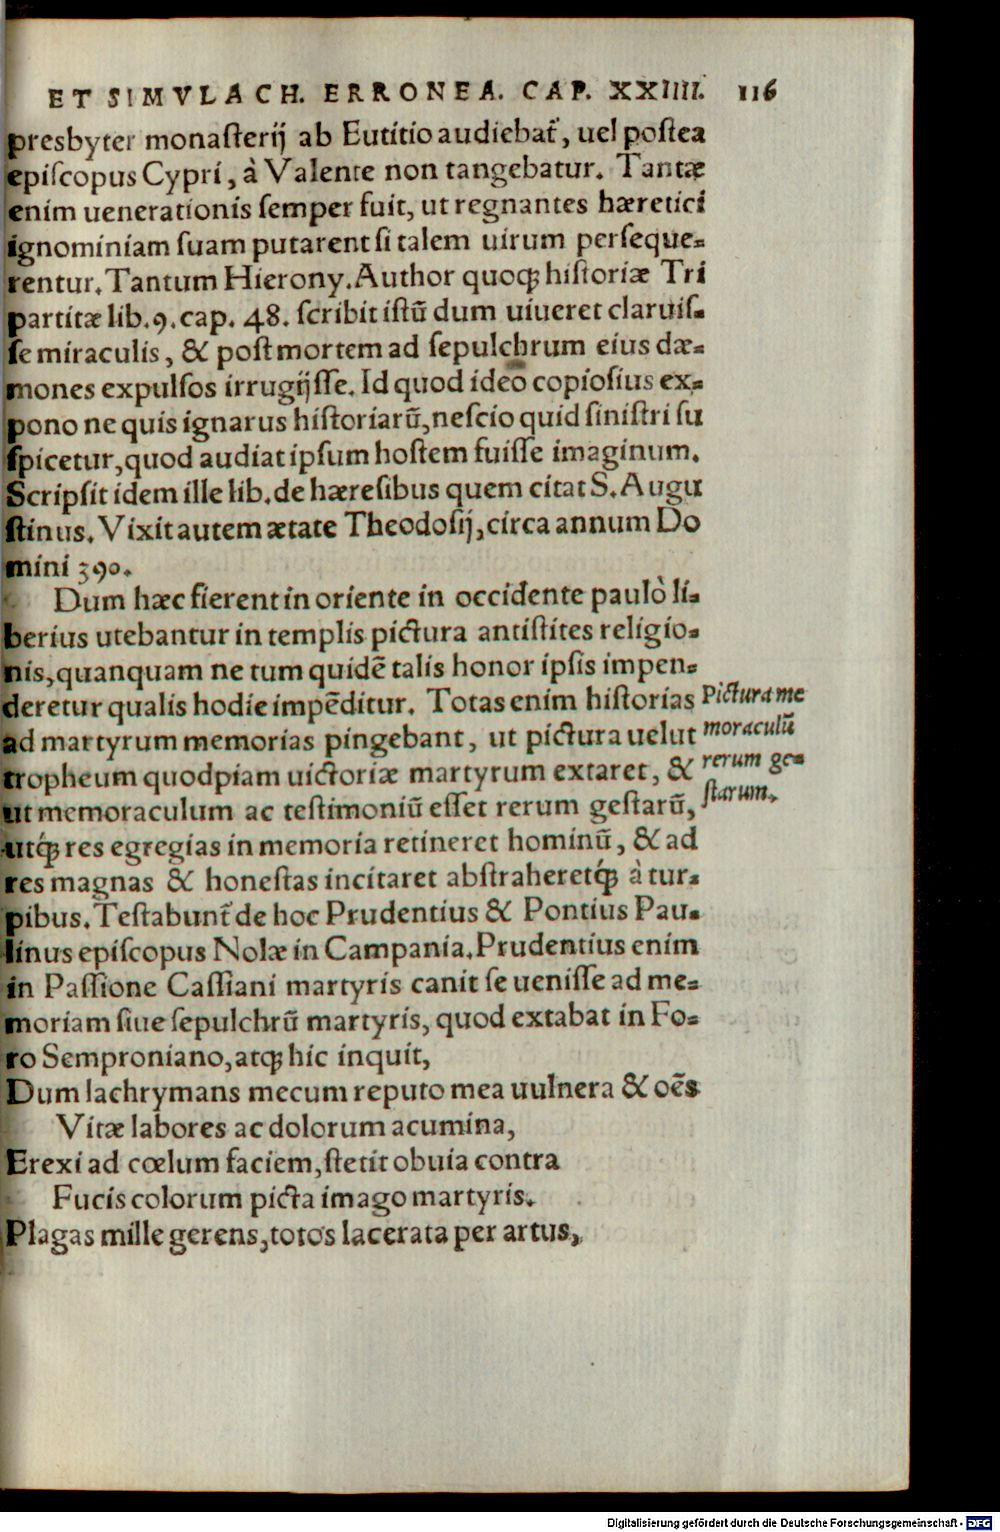 ET SIMVLACH. ERRONEA. CAP. XXIIII. 116
presbyter monasterij ab Eutitio audiebat᷑, uel postea
episcopus Cypri, à Valente non tangebatur. Tantæ
enim uenerationis semper fuit, ut regnantes hæretici
ignominiam suam putarent si talem uirum perseque-
rentur. Tantum Hierony. Author quoqꝫ historiæ Tri
partitæ lib. 9. cap. 48. scribit istũ dum uiueret claruis-
se miraculis, & post mortem ad sepulchrum eius dæ-
mones expulsos irrugijsse. Id quod ideo copiosius ex-
pono ne quis ignarus historiarũ, nescio quid sinistri su
spicetur, quod audiat ipsum hostem fuisse imaginum.
Scripsit idem ille lib. de hæresibus quem citat S. Augu
stinus. Vixit autem ætate Theodosij, circa annum Do
mini 390.
Dum hæc fierent in oriente in occidente paulò li-
berius utebantur in templis pictura antistites religio-
nis, quanquam ne tum quidẽ talis honor ipsis impen-
deretur qualis hodie impẽditur. Totas enim historias
ad martyrum memorias pingebant, ut pictura uelut
tropheum quodpiam uictoriæ martyrum extaret, &
ut memoraculum ac testimoniũ esset rerum gestarũ,
utq́ꝫ res egregias in memoria retineret hominũ, & ad
res magnas & honestas incitaret abstraheretq́ꝫ à tur-
pibus. Testabunt᷑ de hoc Prudentius & Pontius Pau-
linus episcopus Nolæ in Campania. Prudentius enim
in Passione Cassiani martyris canit se uenisse ad me-
moriam siue sepulchrũ martyris, quod extabat in Fo-
ro Semproniano, atqꝫ hic inquit,
Dum lachrymans mecum reputo mea uulnera & oẽs
Vitæ labores ac dolorum acumina,
Erexi ad cœlum faciem, stetit obuia contra
Fucis colorum picta imago martyris.
Plagas mille gerens, totos lacerata per artus,
Pictura me
moraculũ
rerum ge-
starum.
Digitalisierung gefördert durch die Deutsche Forschungsgemeinschaft - DFG